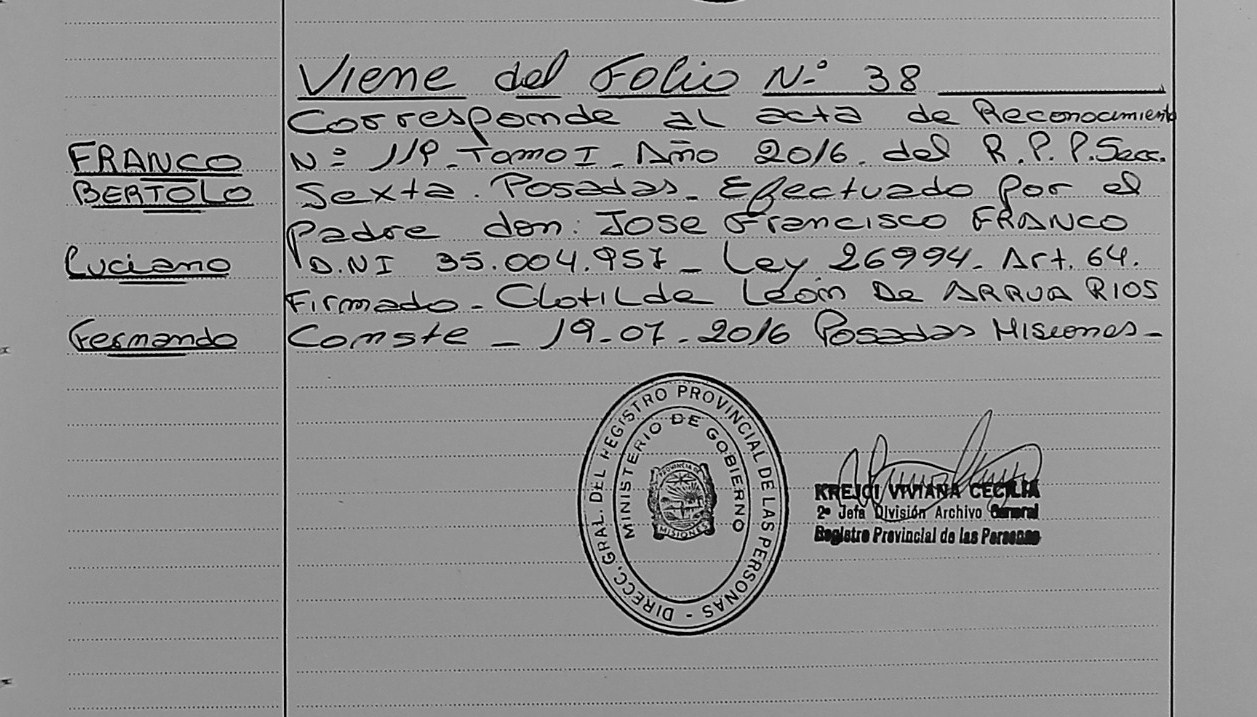 Viene del Folio N° 38
Corresponde al acta de Reconocimiento
FRANCO N° 119_Tomo I_Año 2016. del R.P.P.Secc.
BERTOLO Sexta. Posadas_ Efectuado por el
Padre don: Jose Francisco FRANCO
Luciano D.NI 35.004.957_ Ley 26994. Art. 64.
Firmado_ Clotilde León De ARRUA RIOS
Fernando Conste _ 19-07-2016 Posadas Misiones_
DIRECC. GRAL. DEL REGISTRO PROVINCIAL DE LAS PERSONAS -
MINISTERIO DE GOBIERNO
PROVINCIA DE
MISIONES
KREJCI VIVIANA CECILIA
2º Jefa División Archivo General
Registro Provincial de las Personas